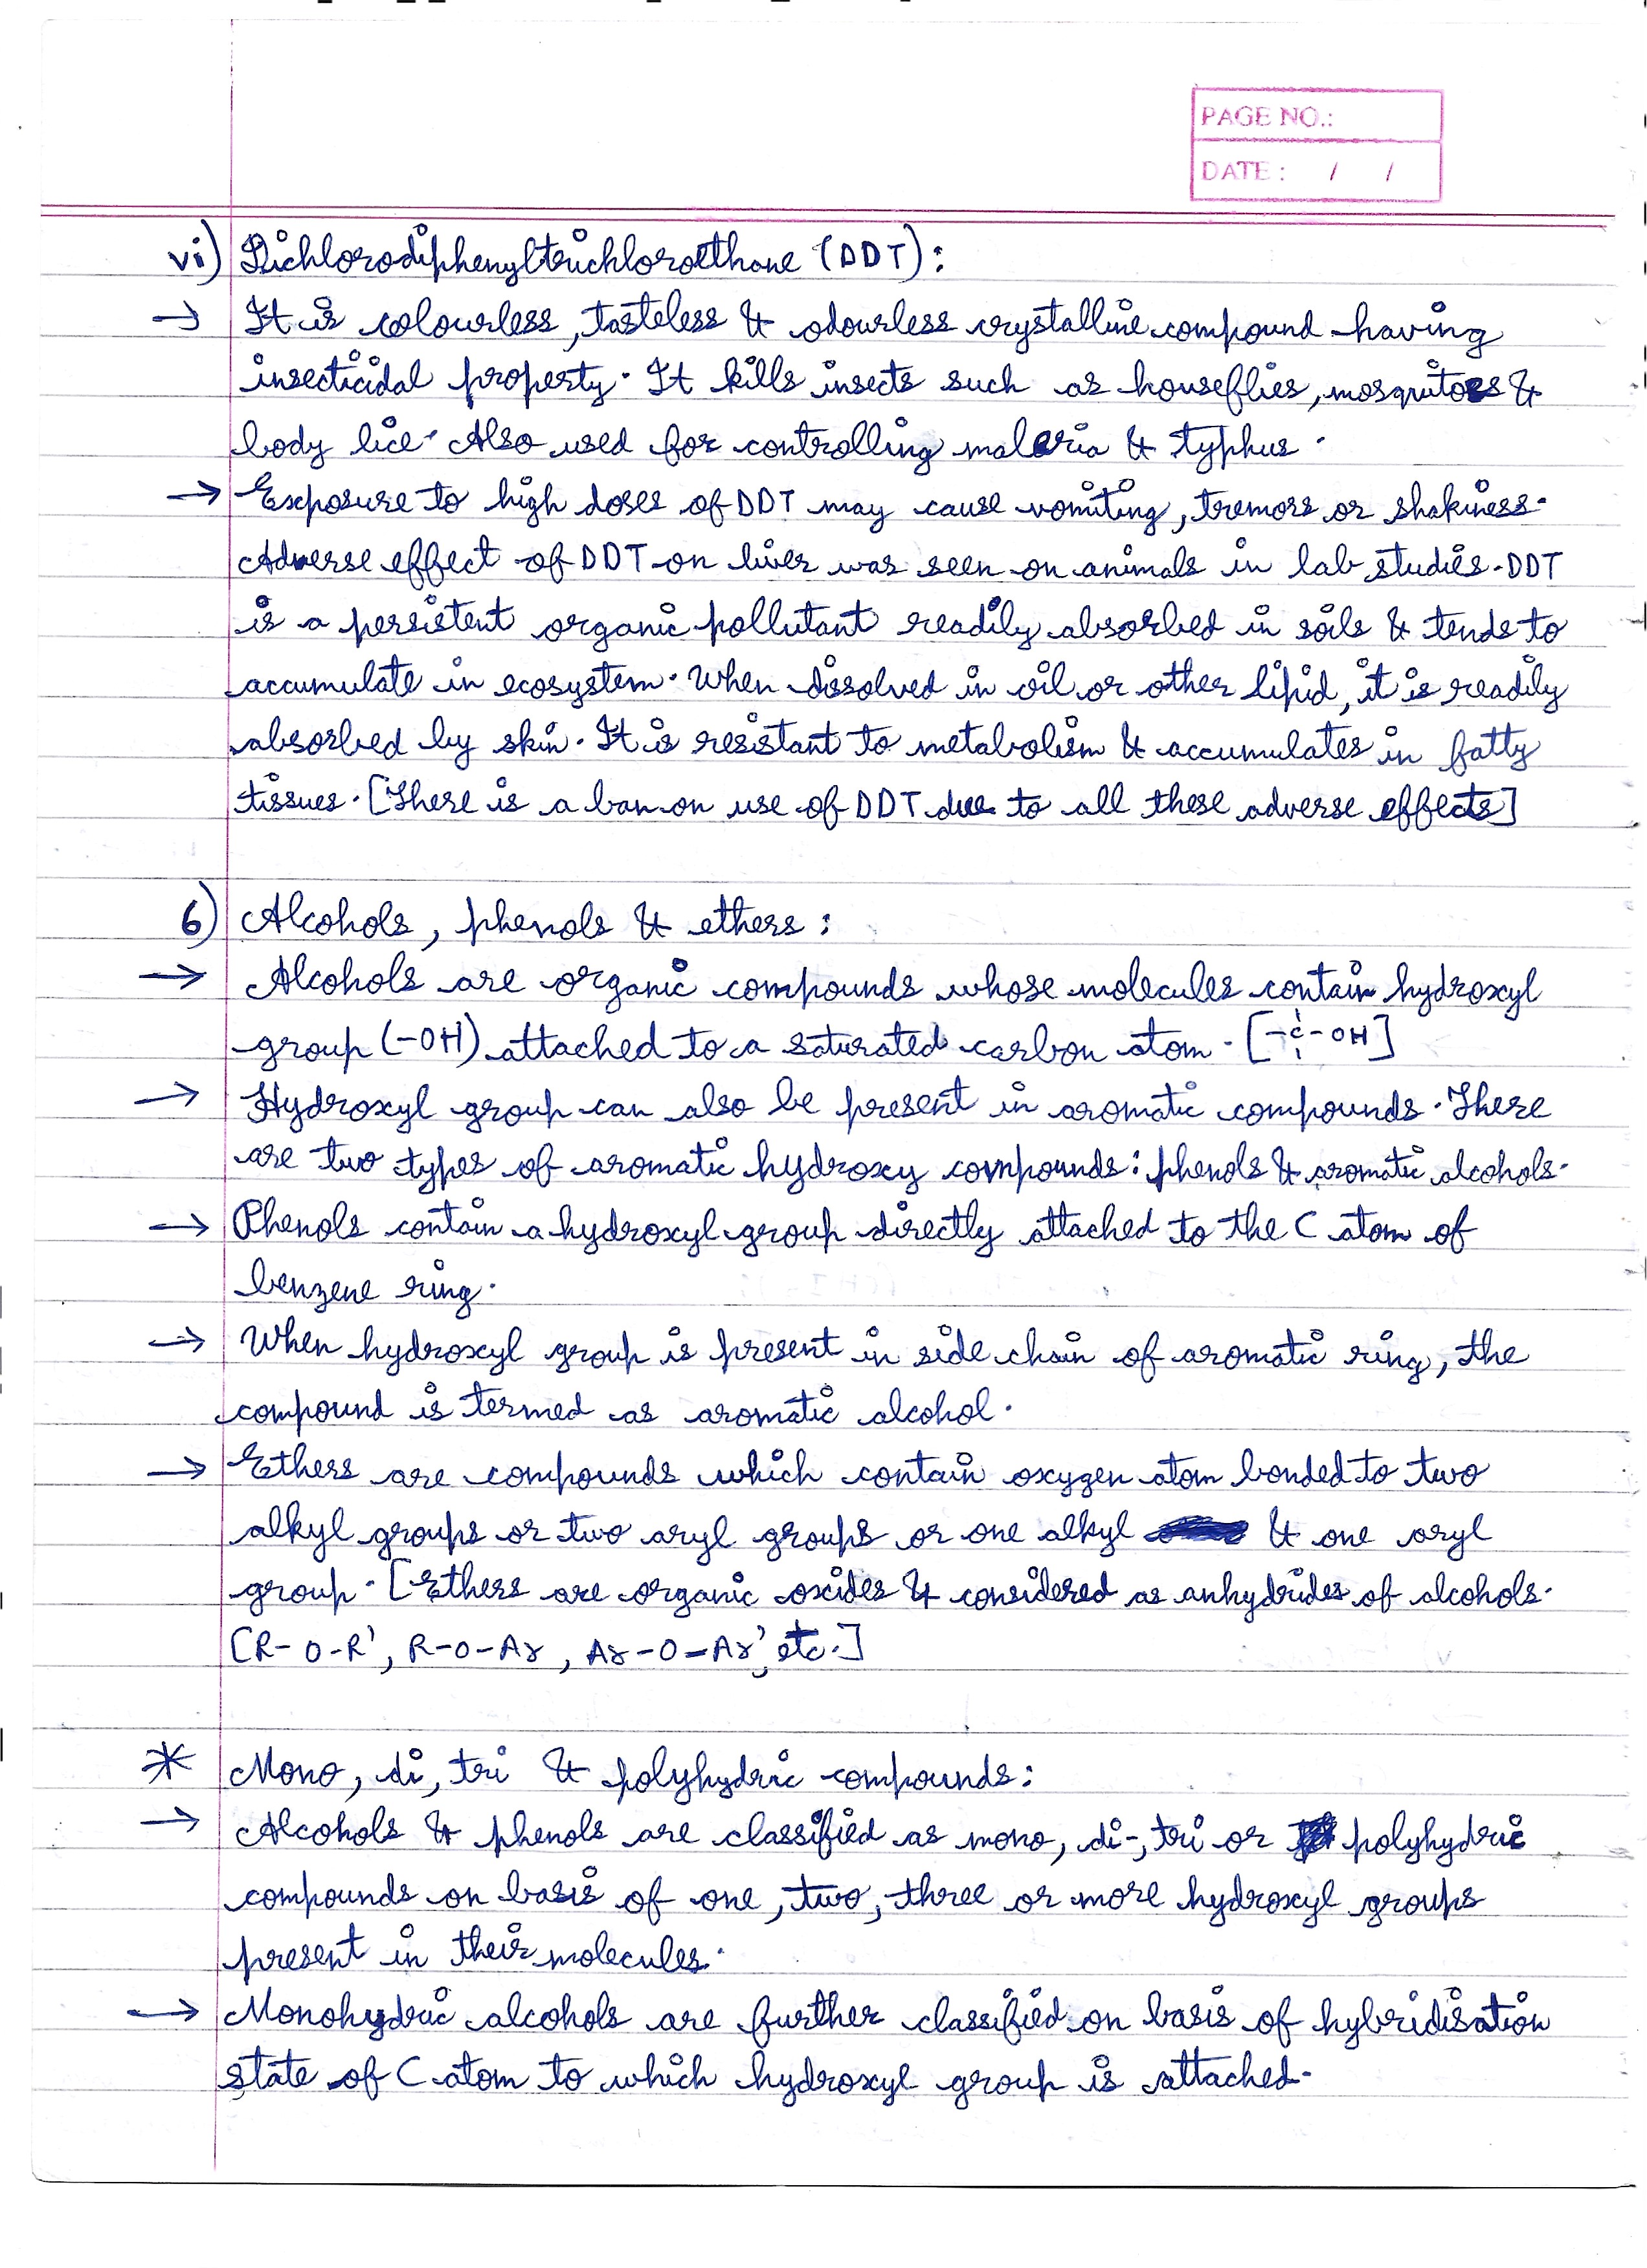 PAGE NO.:
DATE : / /
vi) Dichlorodiphenyltrichloroethane (DDT):
→ It is colourless, tasteless & odourless crystalline compound having
insecticidal property. It kills insects such as houseflies, mosquitoes &
body lice. Also used for controlling malaria & typhus.
→ Exposure to high doses of DDT may cause vomiting, tremors or shakiness.
Adverse effect of DDT on liver was seen on animals in lab studies. DDT
is a persistent organic pollutant readily absorbed in soils & tends to
accumulate in ecosystem. When dissolved in oil or other lipid, it is readily
absorbed by skin. It is resistant to metabolism & accumulates in fatty
tissues. [There is a ban on use of DDT due to all these adverse effects]
6) Alcohols, phenols & ethers:
→ Alcohols are organic compounds whose molecules contain hydroxyl
group (-OH) attached to a saturated carbon atom. [-C-OH]
→ Hydroxyl group can also be present in aromatic compounds. There
are two types of aromatic hydroxy compounds: phenols & aromatic alcohols.
→ Phenols contain a hydroxyl group directly attached to the C atom of
benzene ring.
→ When hydroxyl group is present in side chain of aromatic ring, the
compound is termed as aromatic alcohol.
→ Ethers are compounds which contain oxygen atom bonded to two
alkyl groups or two aryl groups or one alkyl & one aryl
group. [Ethers are organic oxides & considered as anhydrides of alcohols.
[R-O-R', R-O-Ar, Ar-O-Ar', etc.]
* Mono, di, tri & polyhydric compounds:
→ Alcohols & phenols are classified as mono, di-, tri or polyhydric
compounds on basis of one, two, three or more hydroxyl groups
present in their molecules.
→ Monohydric alcohols are further classified on basis of hybridisation
state of C atom to which hydroxyl group is attached.